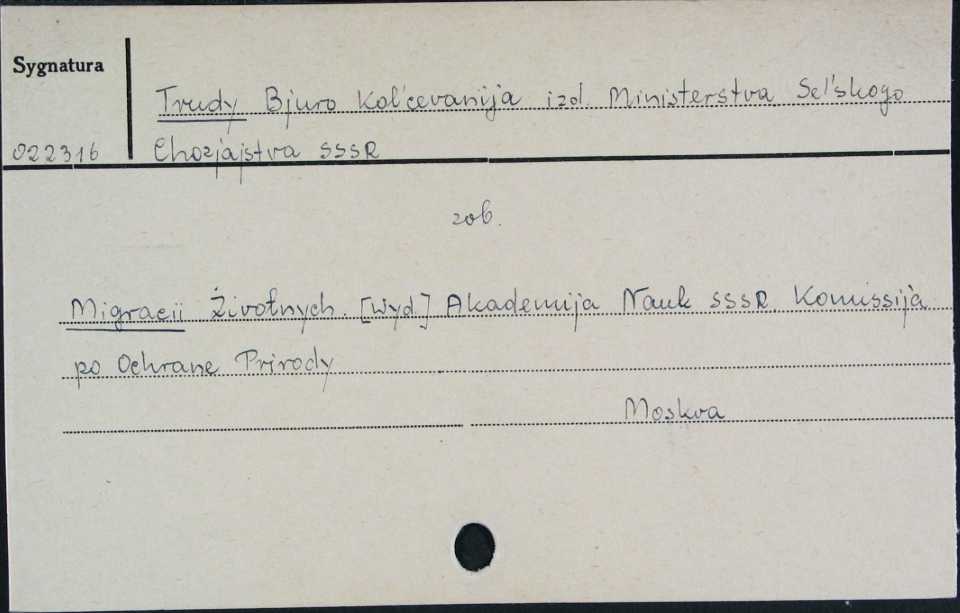 Sygnatura
Trudy Bjuro Kol'cevanija izd. Ministerstva Sel'skogo
022316 Chozjajstva SSSR
zob.
Migracii Životnych. [Wyd.] Akademija Nauk SSSR. Komissija
po Ochrane Prirody
Moskva